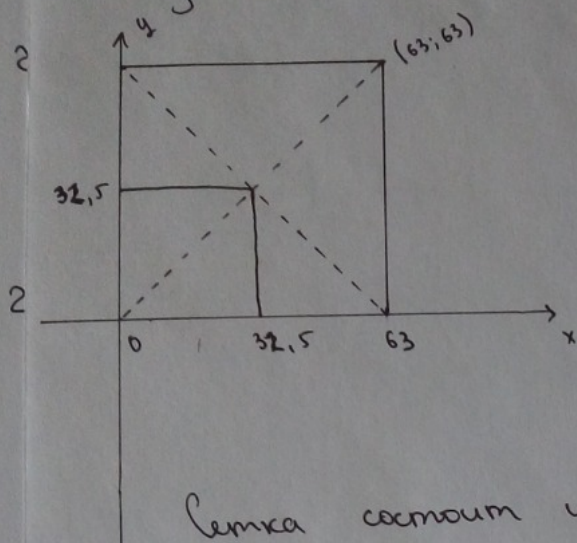 2 y (63;63)
32,5
2
0 32,5 63 x
Сетка состоит